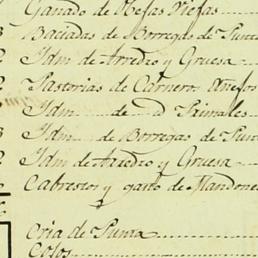 Ganado de Rejas Viejas
Baciadas de Borregas de Punta
Idm de Arredro y Gruesa
Pastorias de Carnero Añejos
Idm de d Primales
Idm de Borregas de Pun
Idm de Arredro y Gruesa
Cabrestos y gasto de Mandones
Cria de Punta
Cotos